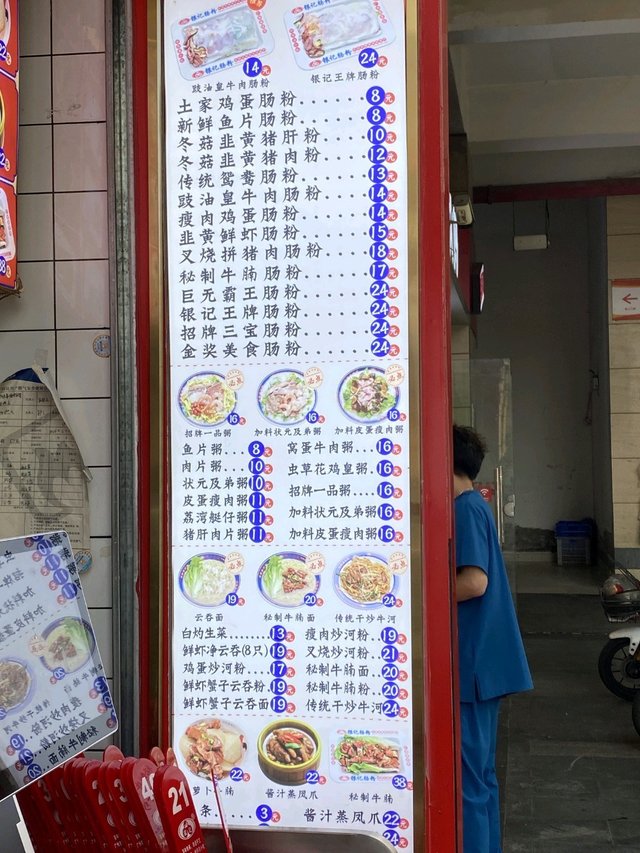 银记肠粉
银记肠粉
14元
24元
豉油皇牛肉肠粉
银记王牌肠粉
土家鸡蛋肠粉......8元
新鲜鱼片肠粉......8元
冬菇韭黄猪肝粉....10元
冬菇韭黄猪肉粉....12元
传统鸳鸯肠粉......13元
豉油皇牛肉肠粉....14元
瘦肉鸡蛋肠粉......14元
韭黄鲜虾肠粉......15元
叉烧拼猪肉肠粉....18元
秘制牛腩肠粉......17元
巨无霸王肠粉......24元
银记王牌肠粉......24元
招牌三宝肠粉......24元
金奖美食肠粉......24元
16元
16元
16元
招牌一品粥
加料状元及弟粥
加料皮蛋瘦肉粥
鱼片粥...8元
肉片粥...10元
状元及弟粥10元
皮蛋瘦肉粥11元
荔湾艇仔粥11元
猪肝肉片粥11元
窝蛋牛肉粥..16元
虫草花鸡皇粥.16元
招牌一品粥....16元
加料状元及弟粥16元
加料皮蛋瘦肉粥16元
19元
20元
24元
云吞面
秘制牛腩面
传统干炒牛河
白灼生菜........13元
鲜虾净云吞(8只)19元
鸡蛋炒河粉....17元
鲜虾蟹子云吞粉.19元
鲜虾蟹子云吞面19元
瘦肉炒河粉..19元
叉烧炒河粉..21元
秘制牛腩面..20元
秘制牛腩粉..20元
传统干炒牛河24元
22元
22元
38元
萝卜牛腩
酱汁蒸凤爪
秘制牛腩
条....3元
酱汁蒸凤爪22元
24元
21